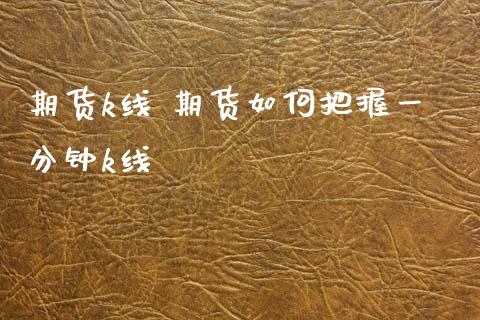 期货k线 期货如何把握一
分钟k线